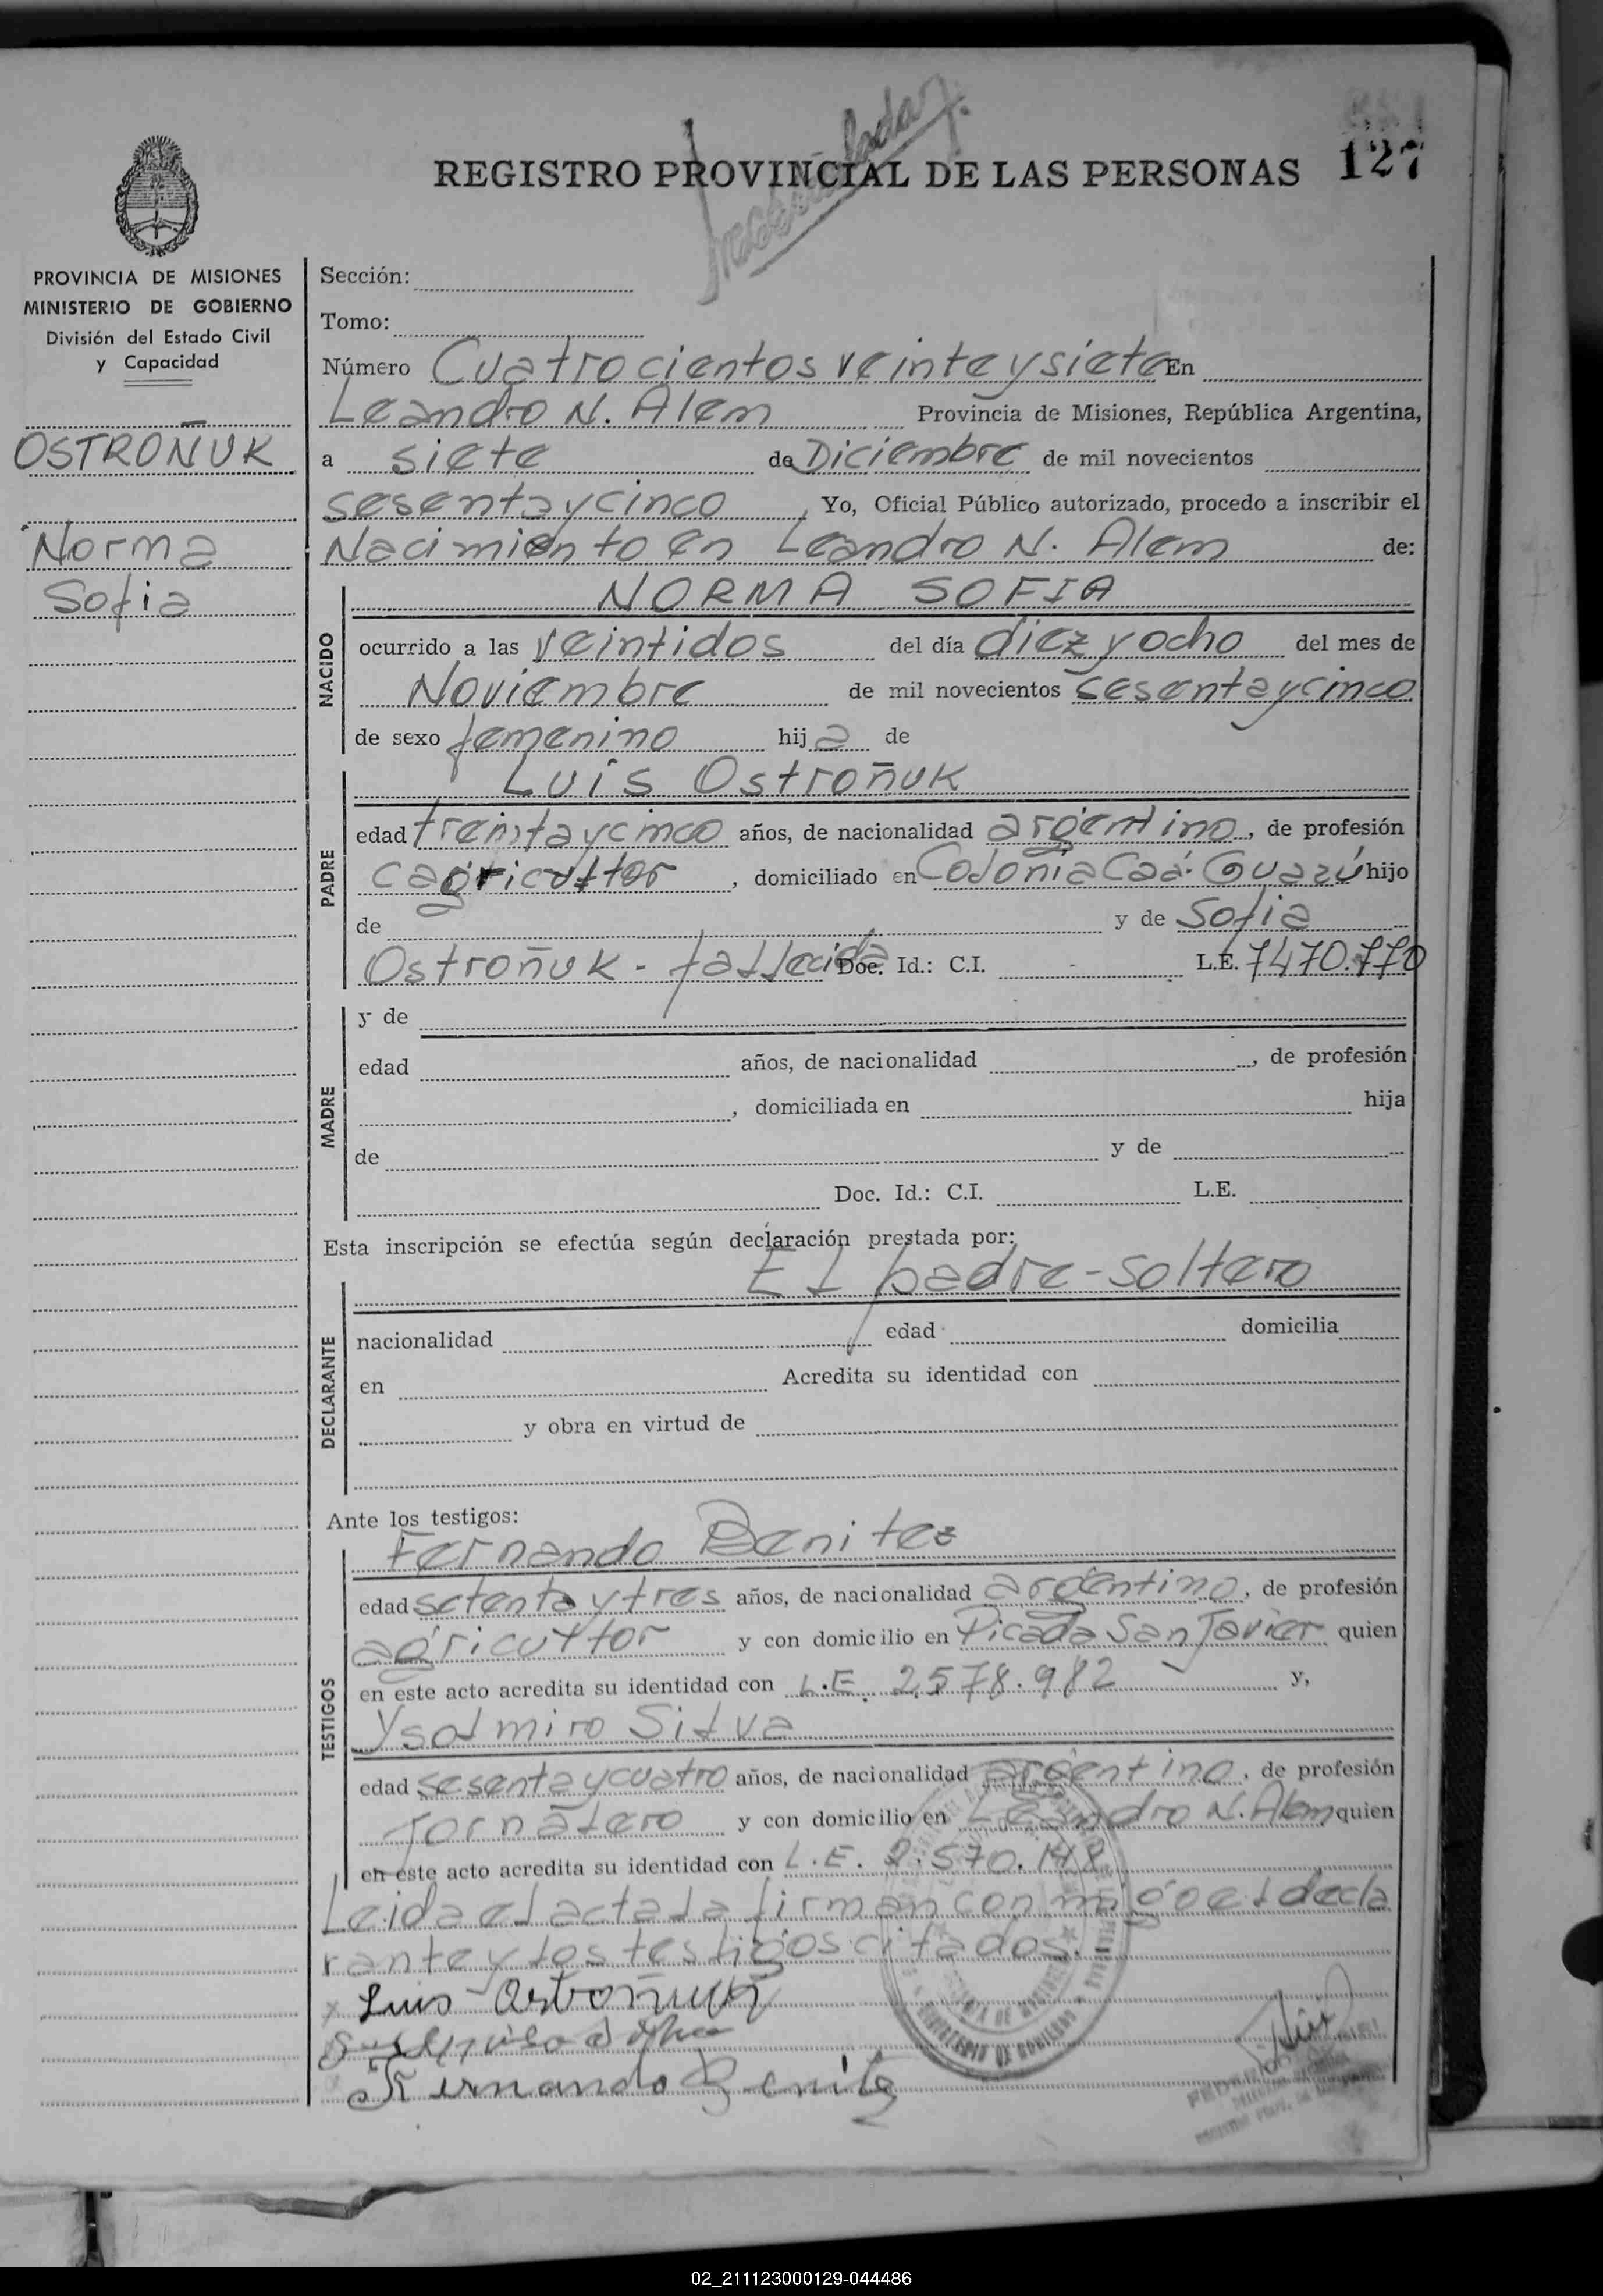 REGISTRO PROVINCIAL DE LAS PERSONAS 127
PROVINCIA DE MISIONES
MINISTERIO DE GOBIERNO
División del Estado Civil
y Capacidad
OSTROÑUK
Norma
Sofia
Sección:
Tomo:
Número Cuatrocientos veinteysiete En
Leandro N. Alem Provincia de Misiones, República Argentina,
a siete de Diciembre de mil novecientos
sesentaycinco Yo, Oficial Público autorizado, procedo a inscribir el
Nacimiento en Leandro N. Alem de:
NACIDO
NORMA SOFIA
ocurrido a las veintidos del día diez y ocho del mes de
Noviembre de mil novecientos sesentaycinco
de sexo femenino hija de
PADRE
Luis Ostroñuk
edad treintaycinco años, de nacionalidad argentino, de profesión
agricultor, domiciliado en Colonia Caá-Guazú hijo
de y de Sofia
Ostroñuk - fallecida Doc. Id.: C.I. - L.E. 7470.770
MADRE
y de
edad años, de nacionalidad , de profesión
, domiciliada en hija
de y de
Doc. Id.: C.I. L.E.
Esta inscripción se efectúa según declaración prestada por:
El padre-soltero
DECLARANTE
nacionalidad edad domicilia
en Acredita su identidad con
y obra en virtud de
Ante los testigos:
TESTIGOS
Fernando Benitez
edad setentaytres años, de nacionalidad argentino, de profesión
agricultor y con domicilio en Picada San Javier quien
en este acto acredita su identidad con L.E. 2.578.982 y,
Ysolmiro Silva
edad sesentaycuatro años, de nacionalidad argentino, de profesión
Jornalero y con domicilio en Leandro N. Alem quien
en este acto acredita su identidad con L.E. 2.570.148
Leida el acta la firman conmigo el decla
rante y los testigos citados.
Luis Ostroñuk
Fernando Benitez
02_211123000129-044486